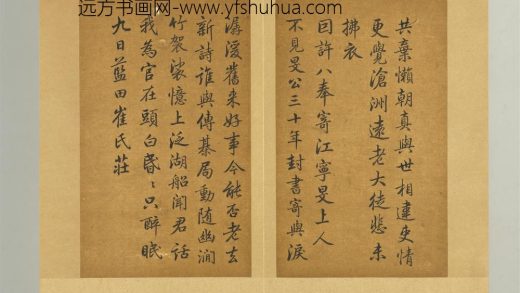 远方书画网：www.yfshuhua.com
共棄懶朝真與世相違吏情
更覺滄洲遠老大徒悲未
拂衣
因許八奉寄江寧旻上人
不見旻公三十年封書寄與淚
潺湲舊來好事今能否老去
新詩誰與傳棊局動隨幽澗
竹袈裟憶上泛湖船聞君話
我為官在頭白昬〻只醉眠
九日藍田崔氏莊